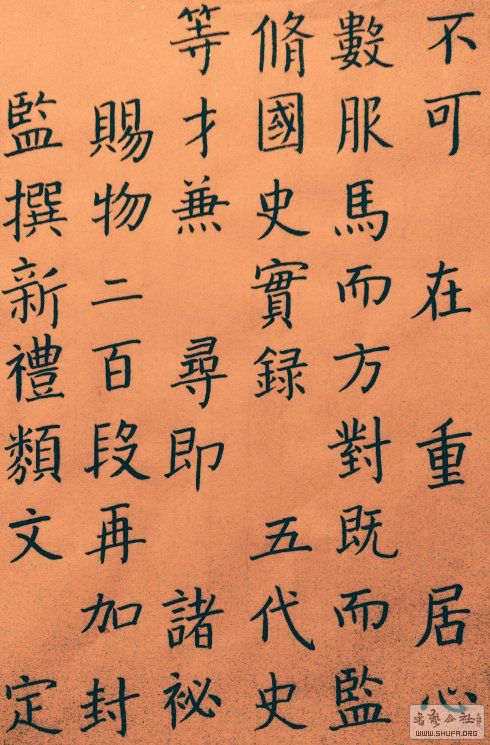 不可在重居心
數服馬而方對既而監
脩國史實録五代史
等才兼尋即諸祕
賜物二百段再加封
監撰新禮類文定
书艺公社
WWW.SHUFA.ORG